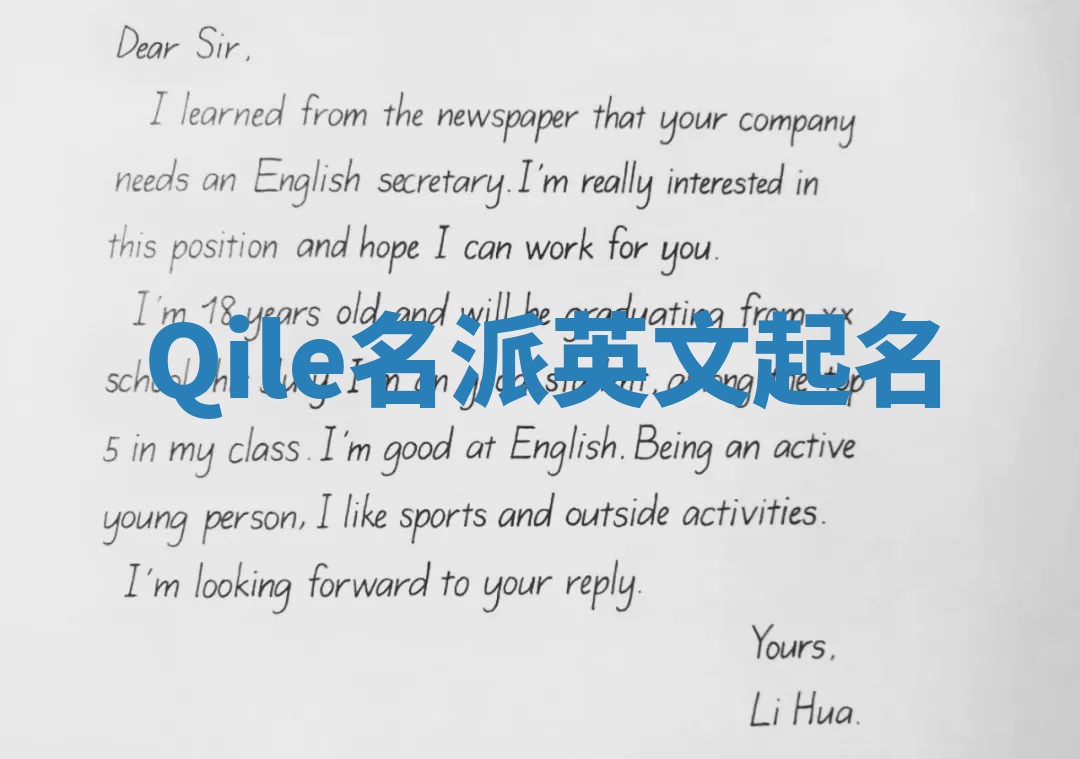 Dear Sir,
I learned from the newspaper that your company
needs an English secretary. I'm really interested in
this position and hope I can work for you.
I'm 18 years old and will be graduating from xx
Qile名派英文起名
school July. I'm an good student, among the top
5 in my class. I'm good at English. Being an active
young person, I like sports and outside activities.
I'm looking forward to your reply.
Yours,
Li Hua.